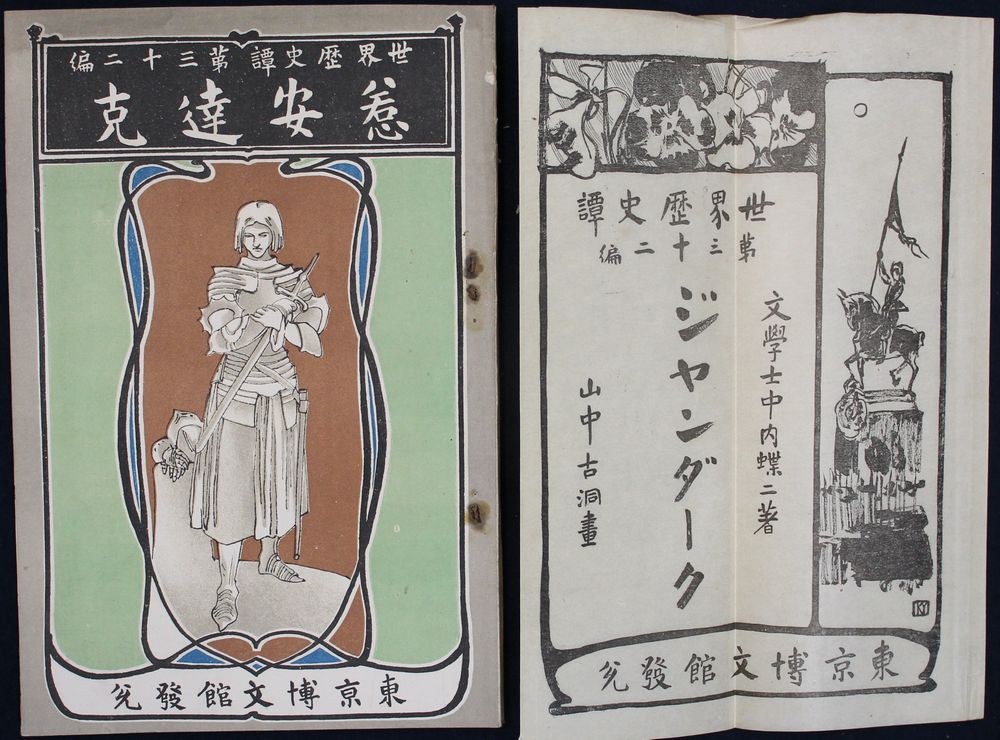 世界歴史譚第三十二編
惹安達克
東京博文館發兌
世界歴史譚
第三十二編
文學士中内蝶二著
ジャンダーク
山中古洞畫
東京博文館發兌